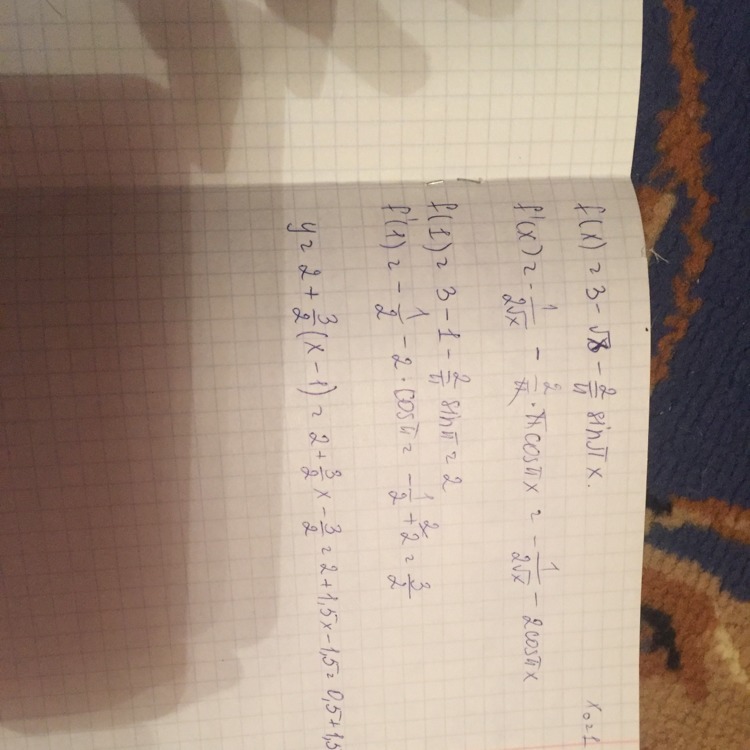 f(x) = 3 - √x - 2/π sin πx. x₀ = 1
f'(x) = - 1/(2√x) - 2/π · π cos πx = - 1/(2√x) - 2 cos πx
f(1) = 3 - 1 - 2/π sin π = 2
f'(1) = - 1/2 - 2 · cos π = - 1/2 + 2 = 3/2
y = 2 + 3/2 (x - 1) = 2 + 3/2 x - 3/2 = 2 + 1,5x - 1,5 = 0,5 + 1,5